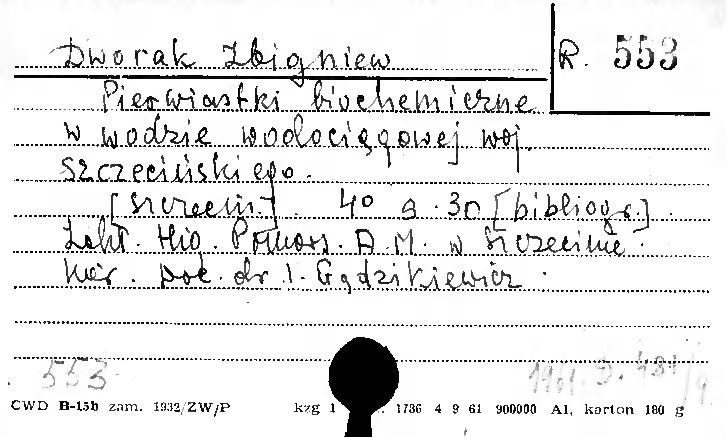 Dworak Zbigniew
R. 553
Pierwiastki biochemiczne
w wodzie wodociągowej woj.
szczecińskiego.
[Szczecin]. 40 s. 30 [bibliogr.]
Zakł. Hig. Pomors. A.M. w Szczecinie.
Kier. Doc. dr. I. Gądzikiewicz.
553
1961. D. 481/9
CWD B-15b zam. 1932/ZW/P kzg 1 1736 4 9 61 900000 A1, karton 180 g